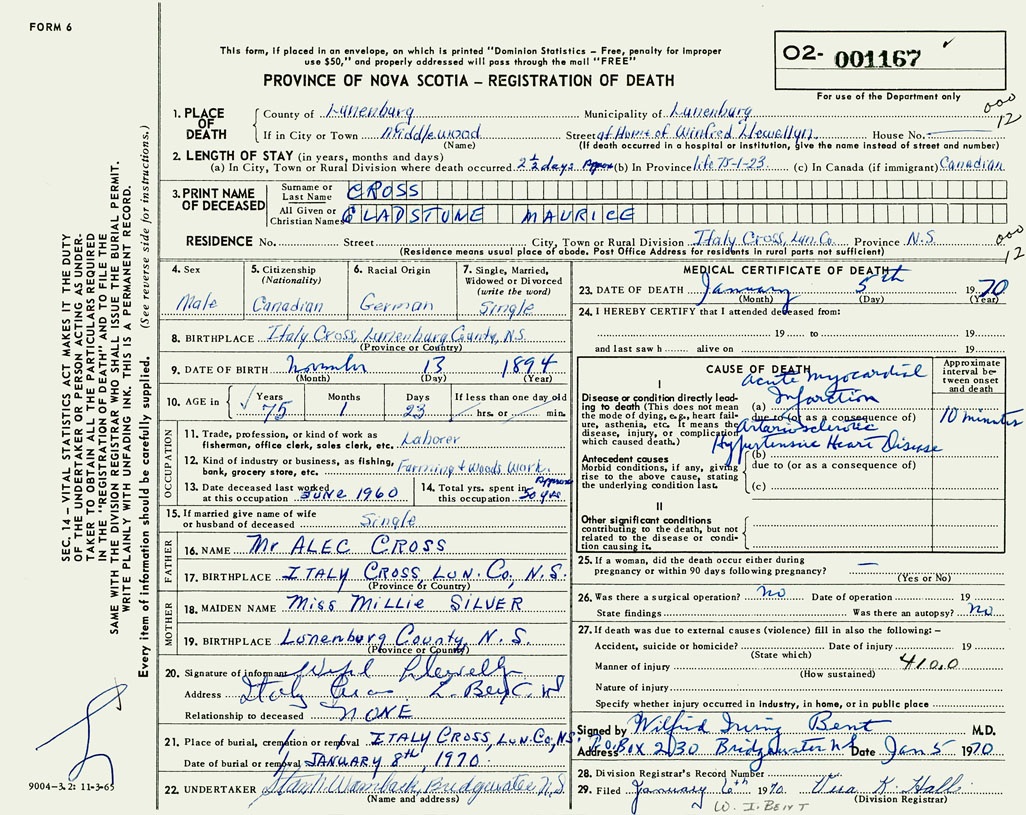 FORM 6
This form, if placed in an envelope, on which is printed "Dominion Statistics – Free, penalty for improper
use $50," and properly addressed will pass through the mail "FREE"
PROVINCE OF NOVA SCOTIA – REGISTRATION OF DEATH
O2- 001167
For use of the Department only
1. PLACE OF DEATH
County of Lunenburg Municipality of Lunenburg
000
12
If in City or Town Middlewood Street at Home of Winfred Llewellyn. House No.
(Name) (If death occurred in a hospital or institution, give the name instead of street and number)
2. LENGTH OF STAY (in years, months and days)
(a) In City, Town or Rural Division where death occurred 2½ days Approx (b) In Province life 75-1-23. (c) In Canada (if immigrant) Canadian
3. PRINT NAME OF DECEASED
Surname or Last Name CROSS
All Given or Christian Names GLADSTONE MAURICE
RESIDENCE No. Street City, Town or Rural Division Italy Cross, Lun. Co. Province N.S.
000
12
(Residence means usual place of abode. Post Office Address for residents in rural parts not sufficient)
4. Sex
Male
5. Citizenship
(Nationality)
Canadian
6. Racial Origin
German
7. Single, Married,
Widowed or Divorced
(write the word)
Single
8. BIRTHPLACE Italy Cross, Lunenburg County, N.S.
(Province or Country)
9. DATE OF BIRTH November 13 1894
(Month) (Day) (Year)
10. AGE in Years Months Days If less than one day old
75 1 23 hrs. or min.
OCCUPATION
11. Trade, profession, or kind of work as
fisherman, office clerk, sales clerk, etc. Laborer
12. Kind of industry or business, as fishing,
bank, grocery store, etc. Farming & Woods Work.
13. Date deceased last worked
at this occupation June 1960
14. Total yrs. spent in
this occupation 50 yrs Approx
15. If married give name of wife
or husband of deceased Single
FATHER
16. NAME Mr ALEC CROSS
17. BIRTHPLACE ITALY CROSS, LUN. CO, N.S.
(Province or Country)
MOTHER
18. MAIDEN NAME Miss MILLIE SILVER
19. BIRTHPLACE Lunenburg County, N.S.
(Province or Country)
20. Signature of informant
Address Italy Cross
Relationship to deceased NONE
21. Place of burial, cremation or removal ITALY CROSS, LUN. CO, NS.
Date of burial or removal JANUARY 8th, 1970
22. UNDERTAKER Bridgewater N.S.
(Name and address)
MEDICAL CERTIFICATE OF DEATH
23. DATE OF DEATH January 5th 1970
(Month) (Day) (Year)
24. I HEREBY CERTIFY that I attended deceased from:
19 to 19
and last saw h alive on 19
CAUSE OF DEATH
Approximate
interval be-
tween onset
and death
I
Disease or condition directly lead-
ing to death (This does not mean
the mode of dying, e.g., heart fail-
ure, asthenia, etc. It means the
disease, injury, or complication
which caused death.)
Acute Myocardial
(a) Infarction
due to (or as a consequence of)
10 minutes
Arteriosclerotic
Hypertensive Heart Disease
Antecedent causes
Morbid conditions, if any, giving
rise to the above cause, stating
the underlying condition last.
(b)
due to (or as a consequence of)
(c)
II
Other significant conditions
contributing to the death, but not
related to the disease or condi-
tion causing it.
25. If a woman, did the death occur either during
pregnancy or within 90 days following pregnancy? —
(Yes or No)
26. Was there a surgical operation? no Date of operation 19
State findings Was there an autopsy? no
27. If death was due to external causes (violence) fill in also the following: –
Accident, suicide or homicide? Date of injury 19
(State which)
Manner of injury 410.0
(How sustained)
Nature of injury
Specify whether injury occurred in industry, in home, or in public place
Signed by Wilfrid Irving Bent M.D.
Address P.O. Box 230 Bridgewater NS Date Jan 5 1970
28. Division Registrar's Record Number
29. Filed January 6th 1970.
(Division Registrar)
W. I. BENT
SEC. 14 – VITAL STATISTICS ACT MAKES IT THE DUTY
OF THE UNDERTAKER OR PERSON ACTING AS UNDER-
TAKER TO OBTAIN ALL THE PARTICULARS REQUIRED
IN THE "REGISTRATION OF DEATH" AND TO FILE THE
SAME WITH THE DIVISION REGISTRAR WHO SHALL ISSUE THE BURIAL PERMIT.
WRITE PLAINLY WITH UNFADING INK. THIS IS A PERMANENT RECORD.
Every item of information should be carefully supplied. (See reverse side for instructions.)
9004-3.2: 11-3-65